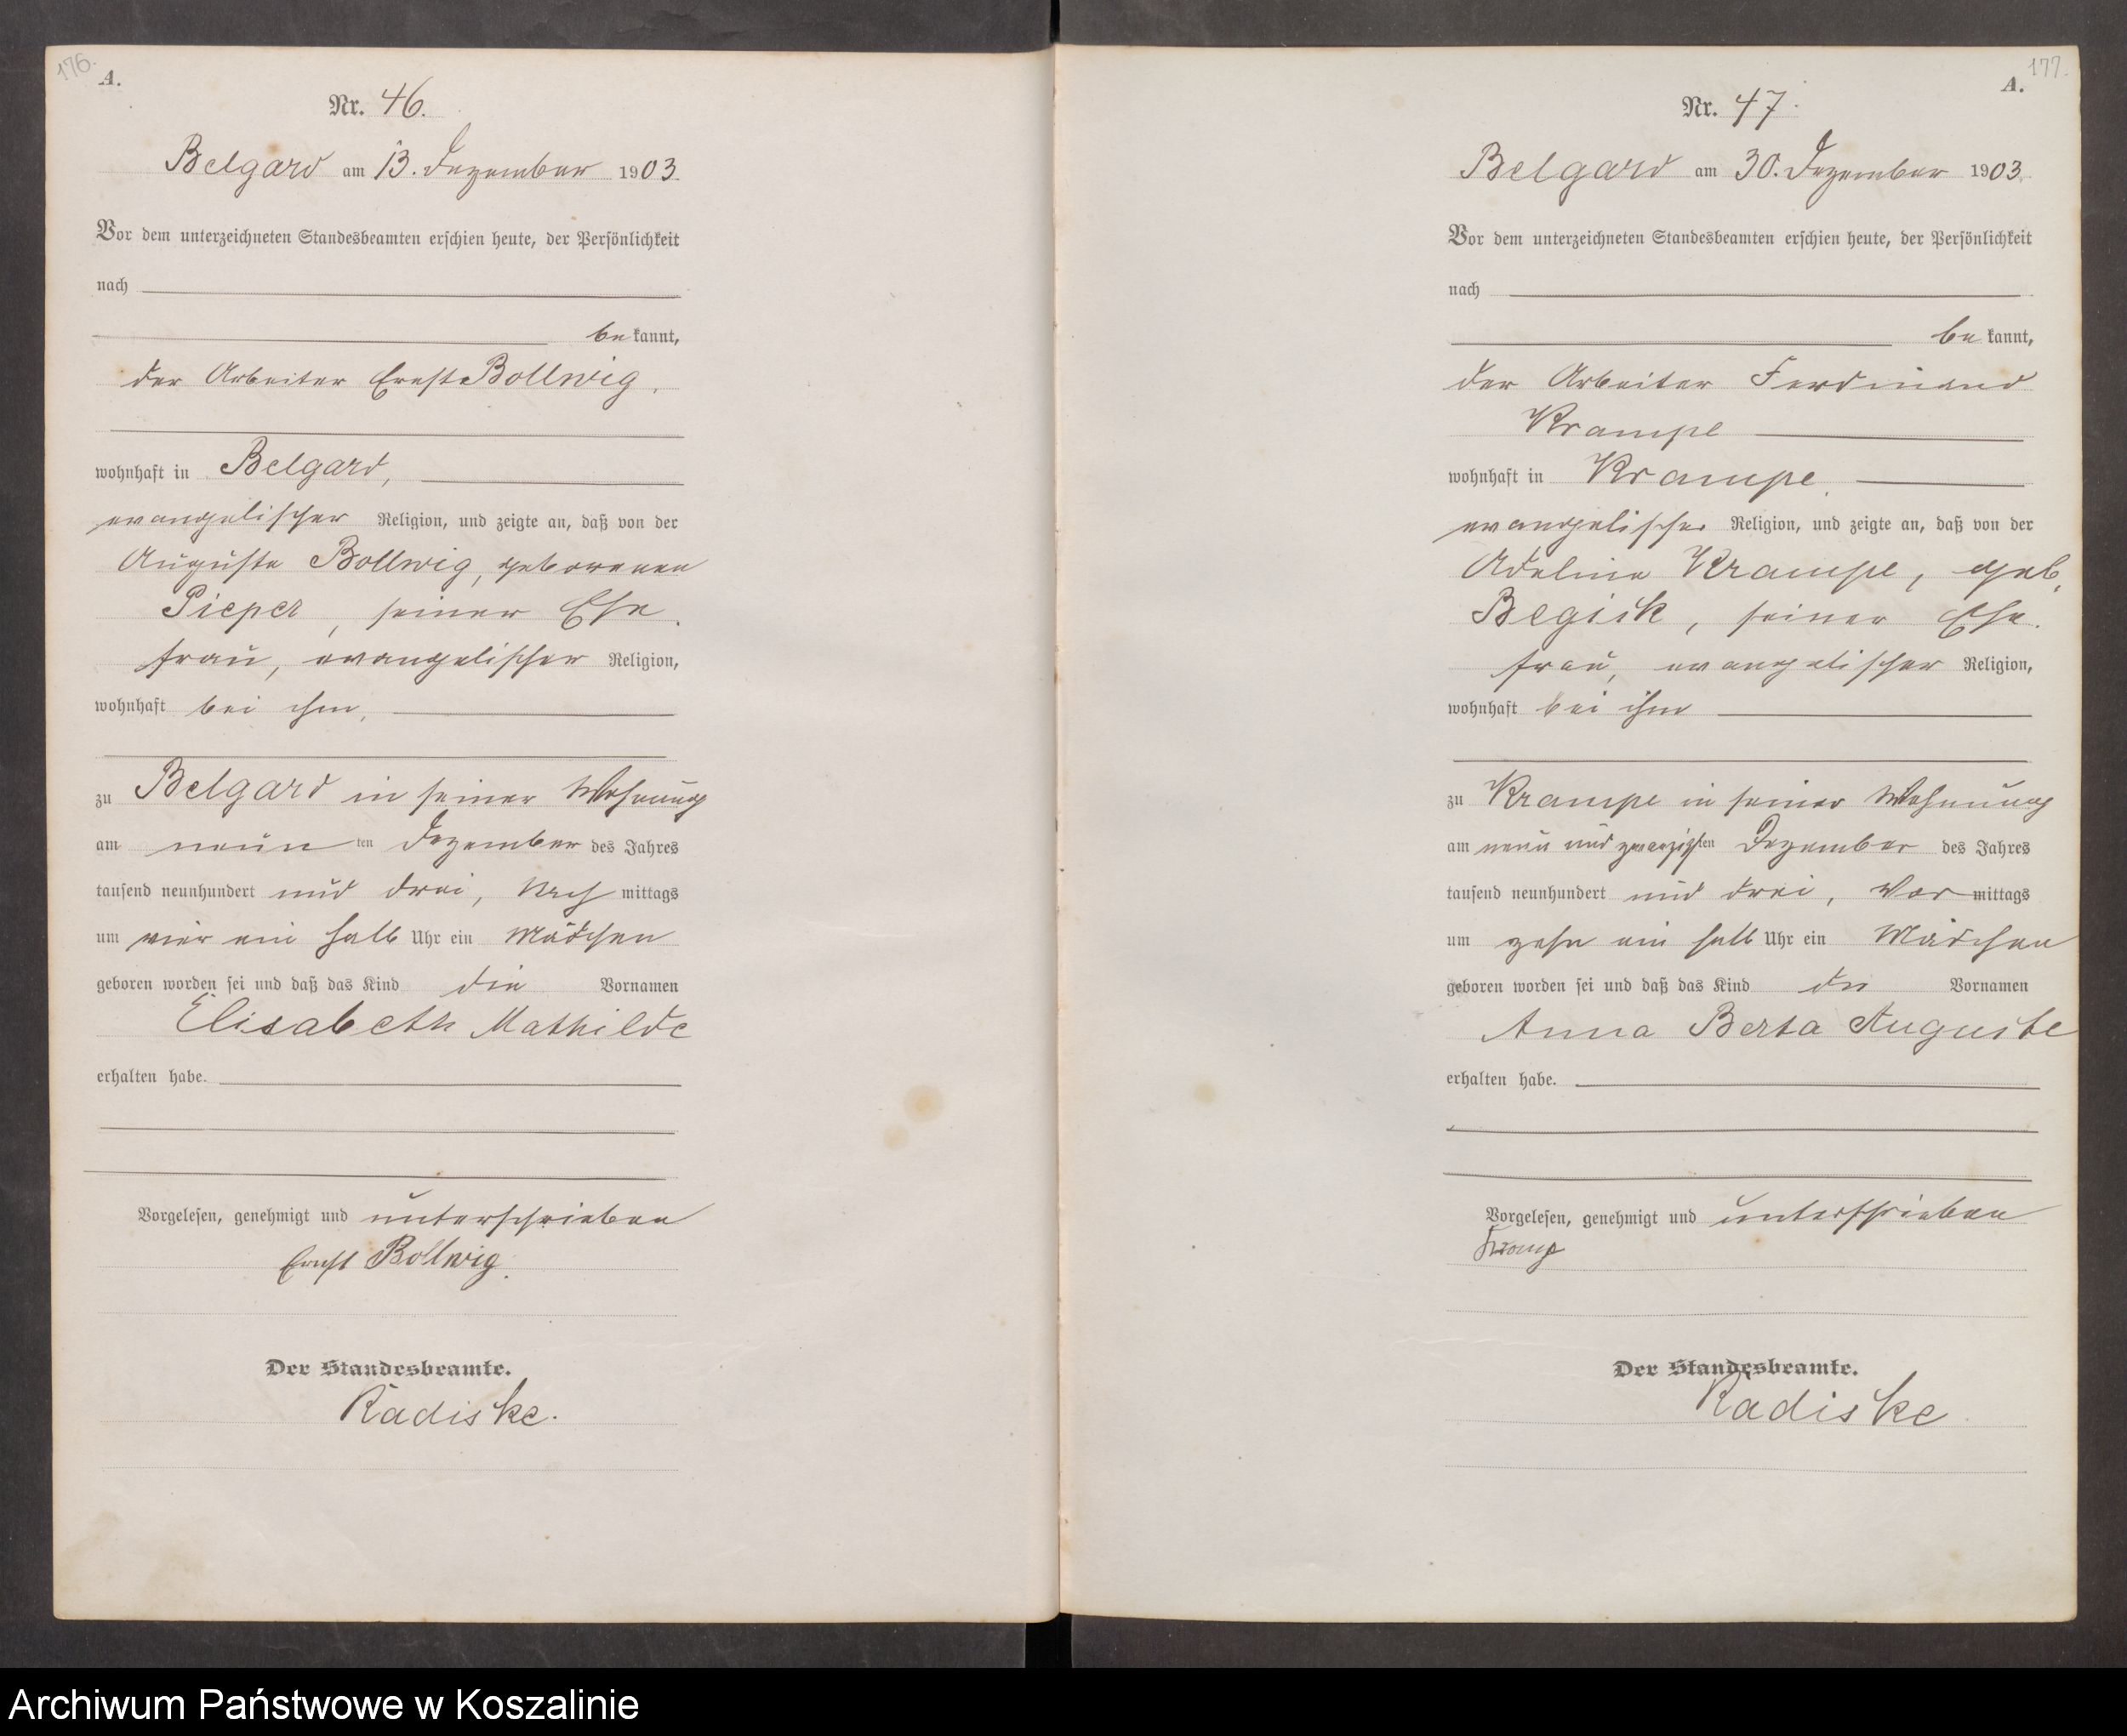 176.
A.
Nr. 46.
Belgard am 13. Dezember 1903.
Vor dem unterzeichneten Standesbeamten erschien heute, der Persönlichkeit
nach
be kannt,
der Arbeiter Ernst Bollwig,
wohnhaft in Belgard,
evangelischer Religion, und zeigte an, daß von der
Auguste Bollwig, geborenen
Pieper, seiner Ehe
frau, evangelischer Religion,
wohnhaft bei ihm,
zu Belgard in seiner Wohnung
am neun ten Dezember des Jahres
tausend neunhundert und drei, Nach mittags
um vier ein halb Uhr ein Mädchen
geboren worden sei und daß das Kind die Vornamen
Elisabeth Mathilde
erhalten habe.
Vorgelesen, genehmigt und unterschrieben
Ernst Bollwig.
Der Standesbeamte.
Radiske.
177.
A.
Nr. 47.
Belgard am 30. Dezember 1903.
Vor dem unterzeichneten Standesbeamten erschien heute, der Persönlichkeit
nach
be kannt,
der Arbeiter Ferdinand
Krampe
wohnhaft in Krampe,
evangelischer Religion, und zeigte an, daß von der
Adeline Krampe, geb.
seiner Ehe.
frau, evangelischer Religion,
wohnhaft bei ihm
zu Krampe in seiner Wohnung
am neun und zwanzigsten Dezember des Jahres
tausend neunhundert und drei, Vor mittags
um zehn ein halb Uhr ein Mädchen
geboren worden sei und daß das Kind die Vornamen
Anna Berta Auguste
erhalten habe.
Vorgelesen, genehmigt und unterschrieben
Der Standesbeamte.
Radiske
Archiwum Państwowe w Koszalinie